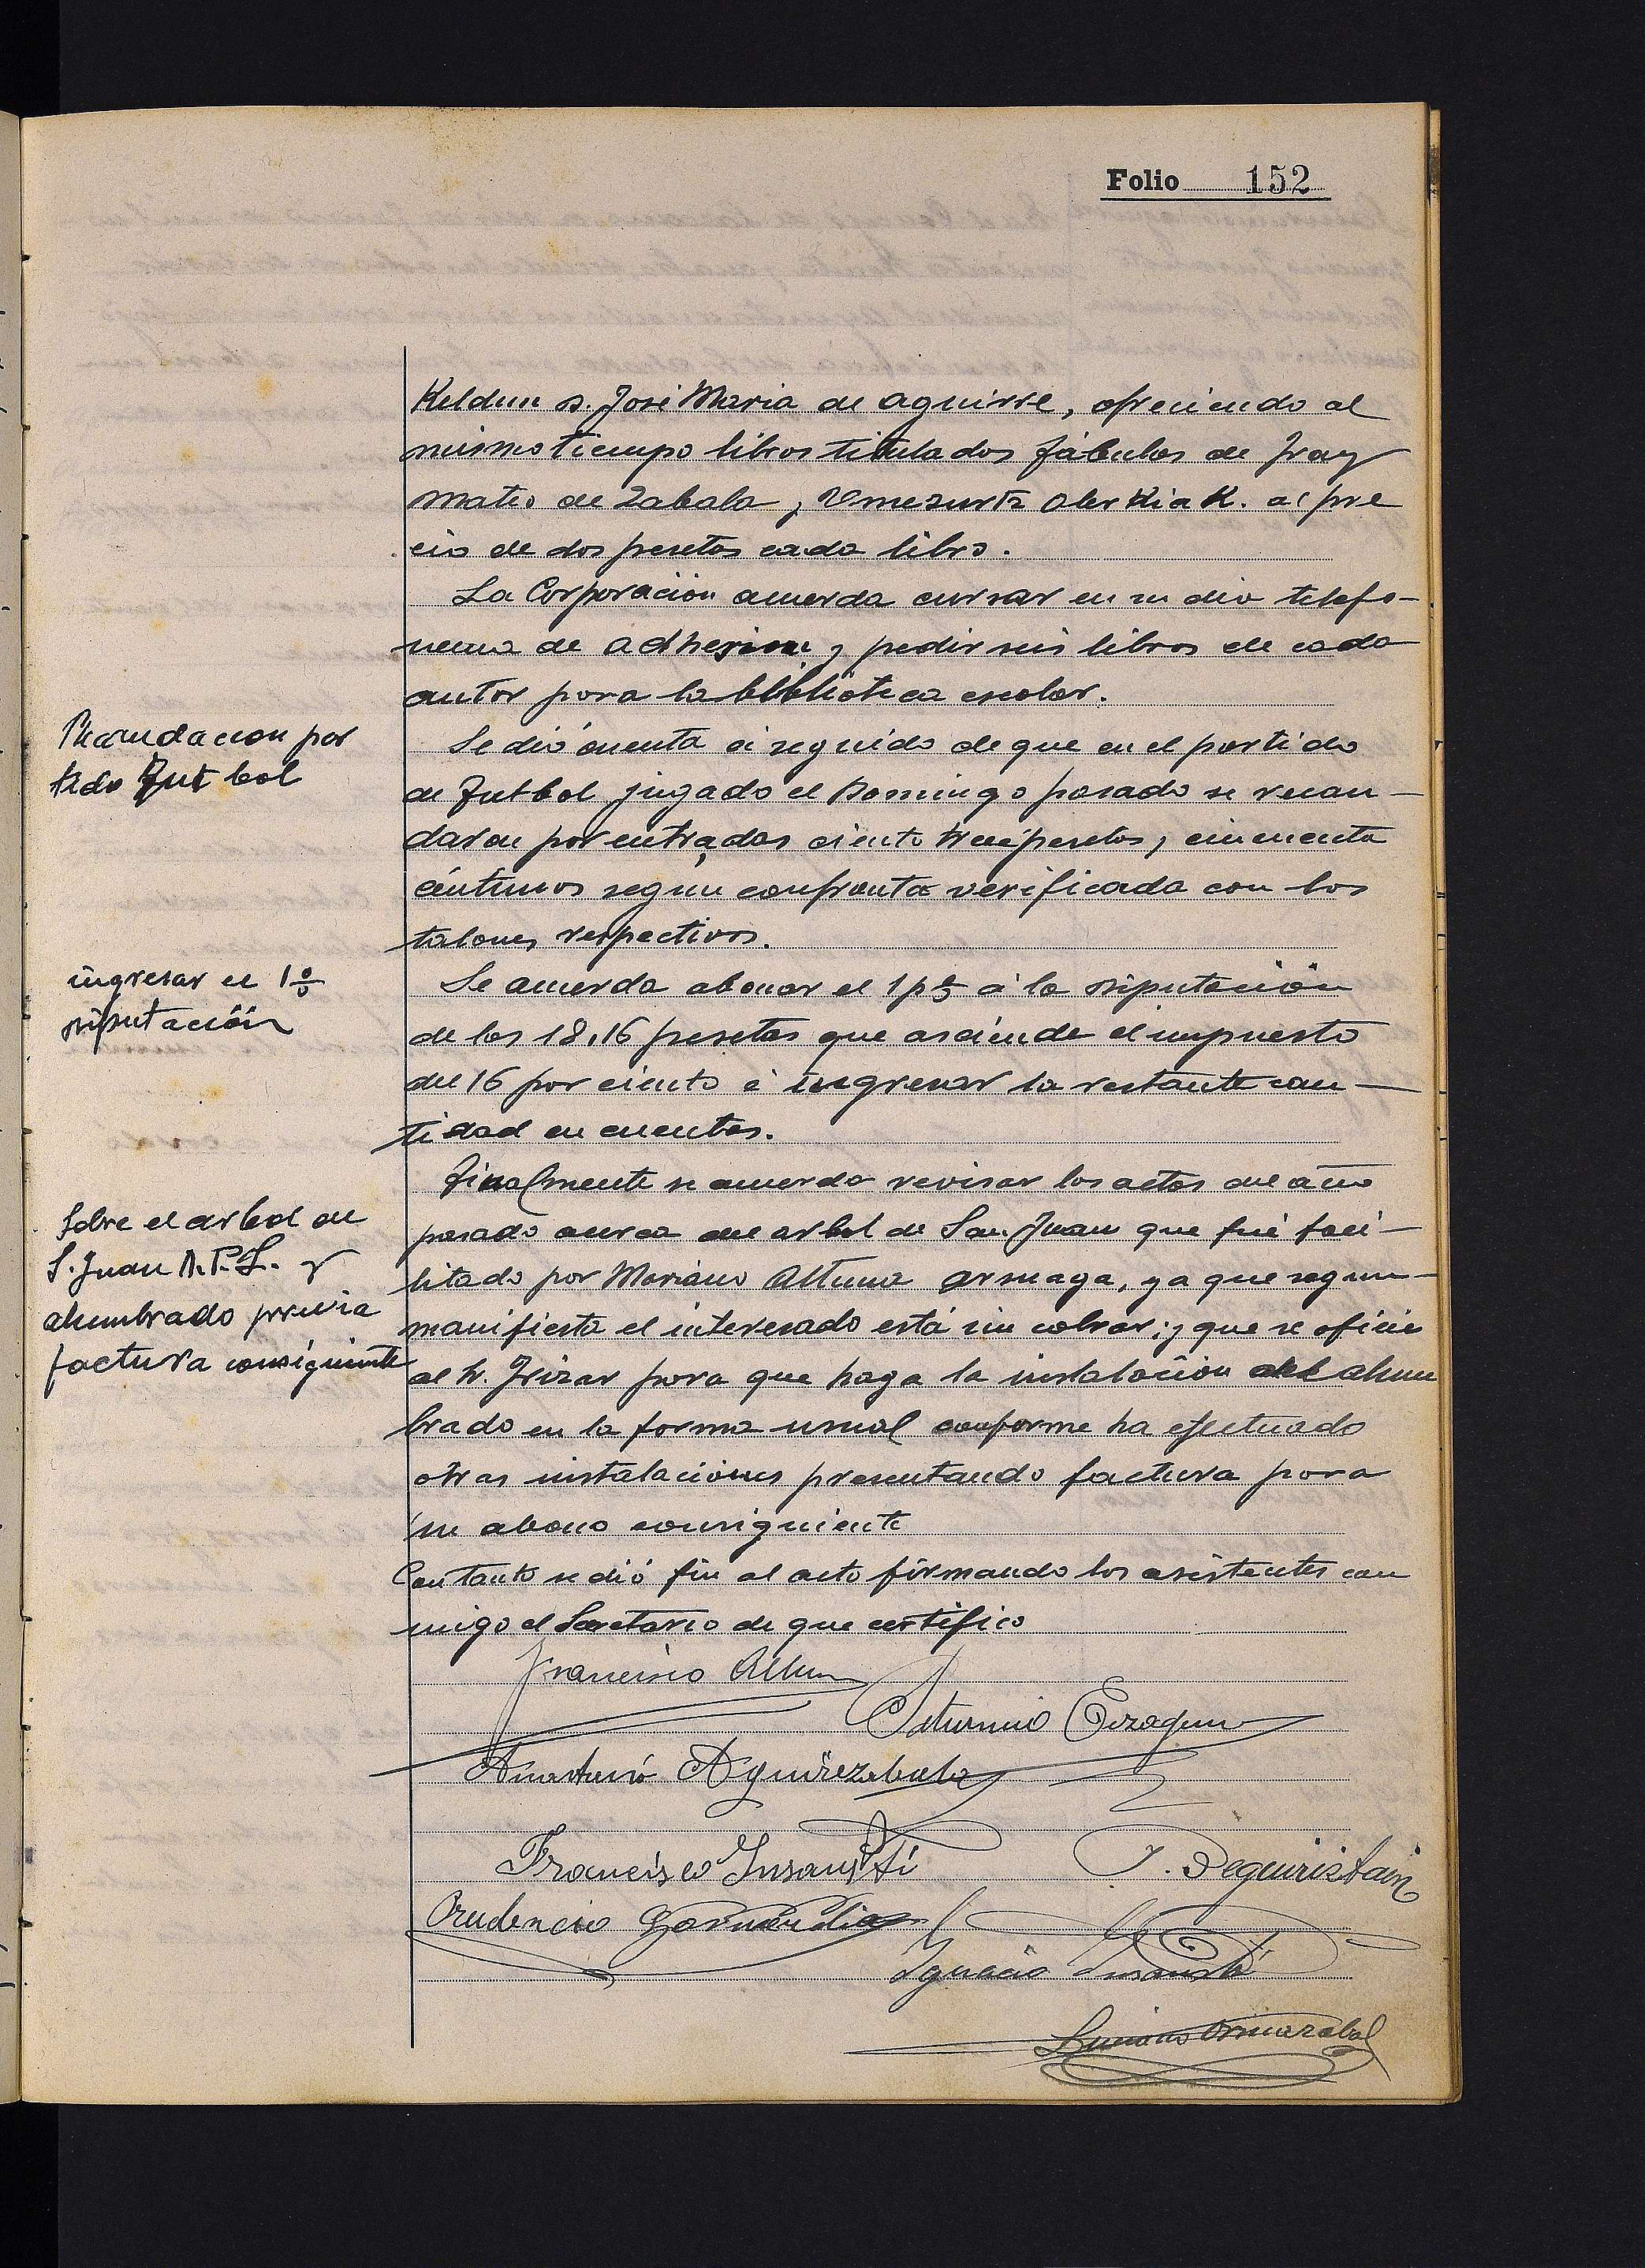 Folio 152
Keldun D. José Maria de Aguirre, ofreciendo al
mismo tiempo libros titulados fábulas de Fray
Mateo de Zabala y Umezurtz olerkiak. al pre
cio de dos pesetas cada libro.
La Corporacion acuerda cursar en su dia telefo-
nema de adhesion y pedir seis libros de cada
autor para la biblioteca escolar.
Recaudacion par
tido Fut bol
Se dió cuenta a seguido de que en el partido
de Futbol jugado el Domingo pasado se recau-
daron por entradas ciento trece pesetas y cincuenta
céntimos según confronta verificada con los
talones respectivos.
ingresar el 1%
Diputación
Se acuerda abonar el 1 p% a la Diputación
de las 18,16 pesetas que asciende el impuesto
del 16 por ciento é ingresar la restante can-
tidad en cuentas.
Sobre el arbol de
S. Juan A.P.L. y
alumbrado previa
factura consiguiente
Finalmente se acuerda revisar las actas del año
pasado acerca del arbol de San Juan que fué faci-
litado por Mariano Altuna Arsuaga, ya que segun-
manifiesta el interesado está sin cobrar; y que se oficie
al Sr. Irizar para que haga la instalación del alum
brado en la forma usual conforme ha efectuado
otras instalaciones presentando factura para
su abono consiguiente
Con tanto se dió fin al acto firmando los asistentes con
migo el Secretario de que certifico
Francisco Altuna
Saturnino Eizaguirre
Anastasio Aguirrezabala
Francisco Insausti
J. Oeguiristain
Prudencio Garmendia
Ignacio Insausti
Luciano Ormazabal